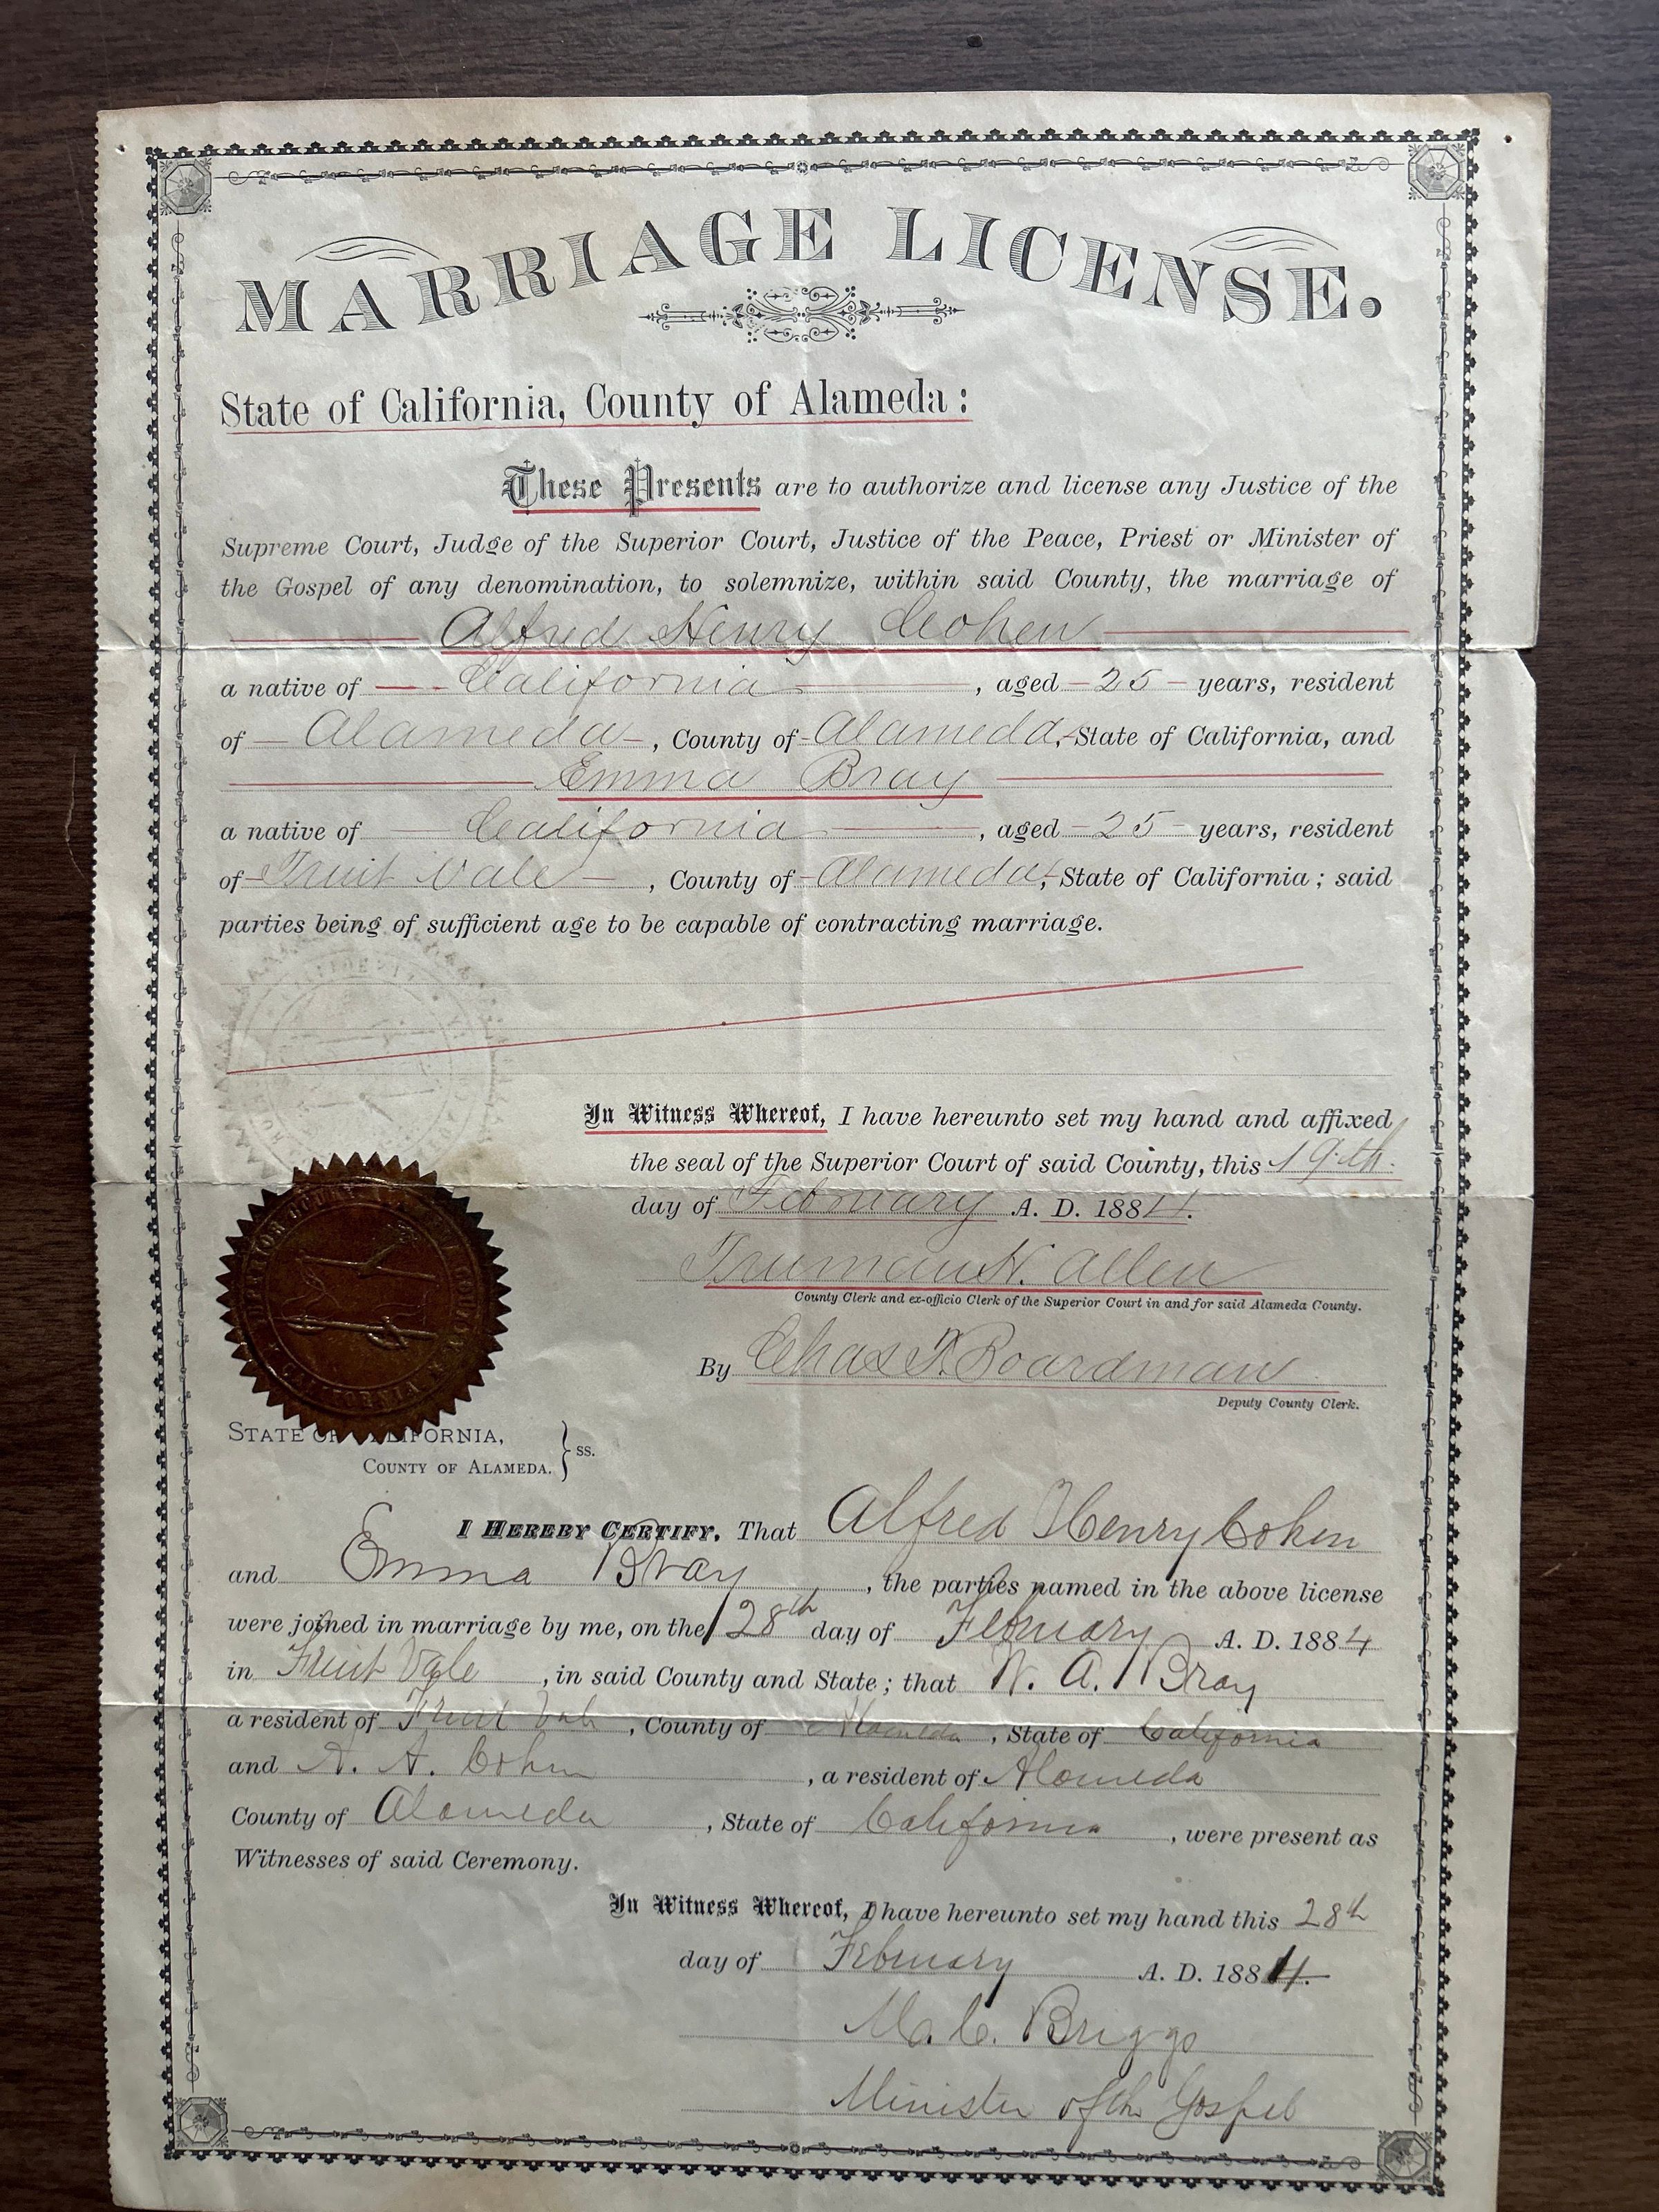 MARRIAGE LICENSE.
State of California, County of Alameda:
These Presents are to authorize and license any Justice of the
Supreme Court, Judge of the Superior Court, Justice of the Peace, Priest or Minister of
the Gospel of any denomination, to solemnize, within said County, the marriage of
Alfred Henry Cohen
a native of California, aged 25 years, resident
of Alameda, County of Alameda, State of California, and
Emma Bray
a native of California, aged 25 years, resident
of Fruit Vale, County of Alameda, State of California; said
parties being of sufficient age to be capable of contracting marriage.
In Witness Whereof, I have hereunto set my hand and affixed
the seal of the Superior Court of said County, this 19th.
day of February A. D. 1884.
Truman H. Allen
County Clerk and ex-officio Clerk of the Superior Court in and for said Alameda County.
By Chas T. Boardman
Deputy County Clerk.
STATE OF CALIFORNIA,
COUNTY OF ALAMEDA. } SS.
I HEREBY CERTIFY, That Alfred Henry Cohen
and Emma Bray, the parties named in the above license
were joined in marriage by me, on the 28th day of February A. D. 1884
in Fruit Vale, in said County and State; that W. A. Bray
a resident of Fruit Vale, County of Alameda, State of California
and A. A. Cohen, a resident of Alameda
County of Alameda, State of California, were present as
Witnesses of said Ceremony.
In Witness Whereof, I have hereunto set my hand this 28th
day of February A. D. 1884.
M. C. Briggs
Minister of the Gospel